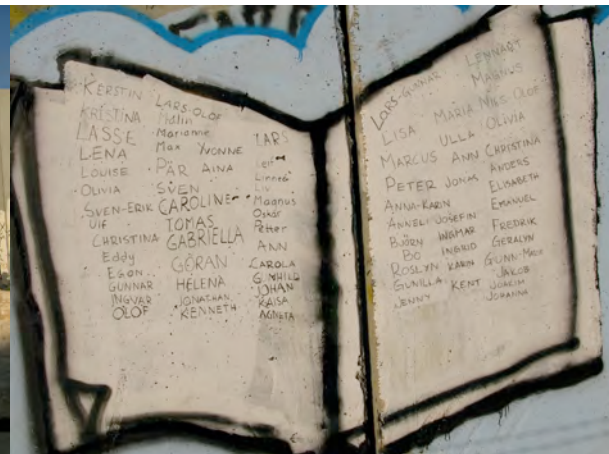 KERSTIN
KRISTINA
LASSE
LENA
LOUISE
OLIVIA
SVEN-ERIK
Ulf
CHRISTINA
Eddy
EGON
GUNNAR
INGVAR
OLOF
LARS-OLOF
Malin
Marianne
Max YVONNE
PÄR AINA
SVEN
CAROLINE
TOMAS
GABRIELLA
GÖRAN
HELENA
JONATHAN
KENNETH
LARS
Leif
Linnea
Liv
Magnus
Oskar
Petter
ANN
CAROLA
GUNHILD
JOHAN
KAISA
AGNETA
LARS-GUNNAR LENNART
MAGNUS
LISA MARIA NILS-OLOF
MARCUS ULLA OLIVIA
PETER JONAS ANN CHRISTINA
ANNA-KARIN ANDERS
ANNELI JOSEFIN ELISABETH
BJÖRN INGMAR EMANUEL
BO INGRID FREDRIK
ROSLYN KARIN GERALYN
GUNILLA KENT GUNN-MARIE
JENNY JAKOB
JOAKIM
JOHANNA